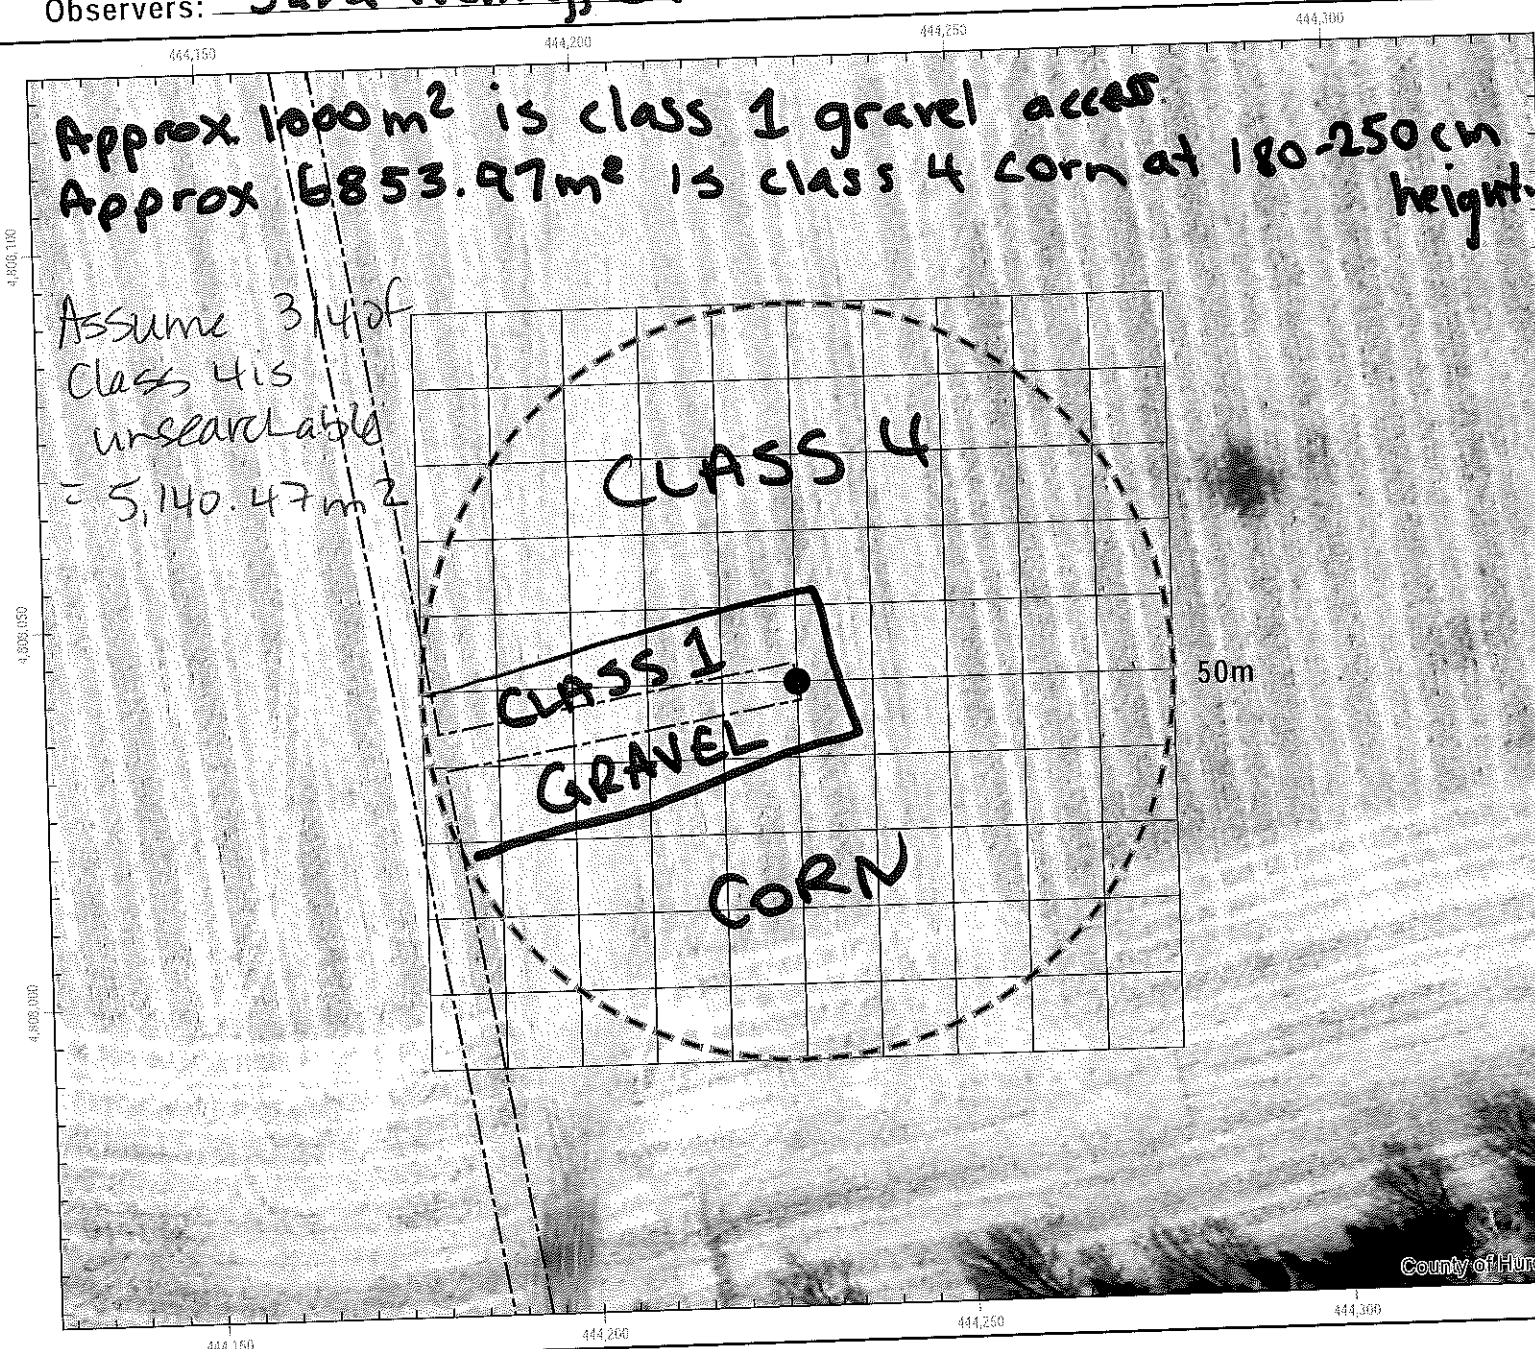 Observers:
444,150 444,200 444,250 444,300
Approx. 1000m² is class 1 gravel access
Approx 6853.97m² is class 4 corn at 180-250cm
height
4,808,100
Assume 3/4 of
Class 4 is
unsearchable
= 5,140.47m²
CLASS 4
4,808,050
CLASS 1
50m
GRAVEL
CORN
4,808,000
County of Huro
444,150 444,200 444,250 444,300